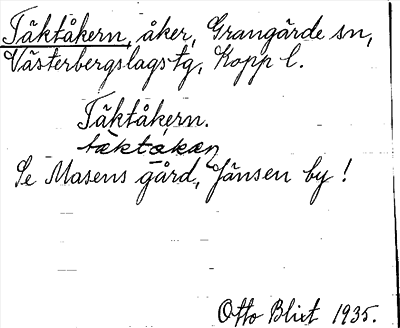 Täktåkern, åker, Grangärde sn,
Västerbergslags tg, Kopp l.
Täktåkern.
täktåkæṇ
Se Masens gård, Jänsen by!
Otto Blixt 1935.